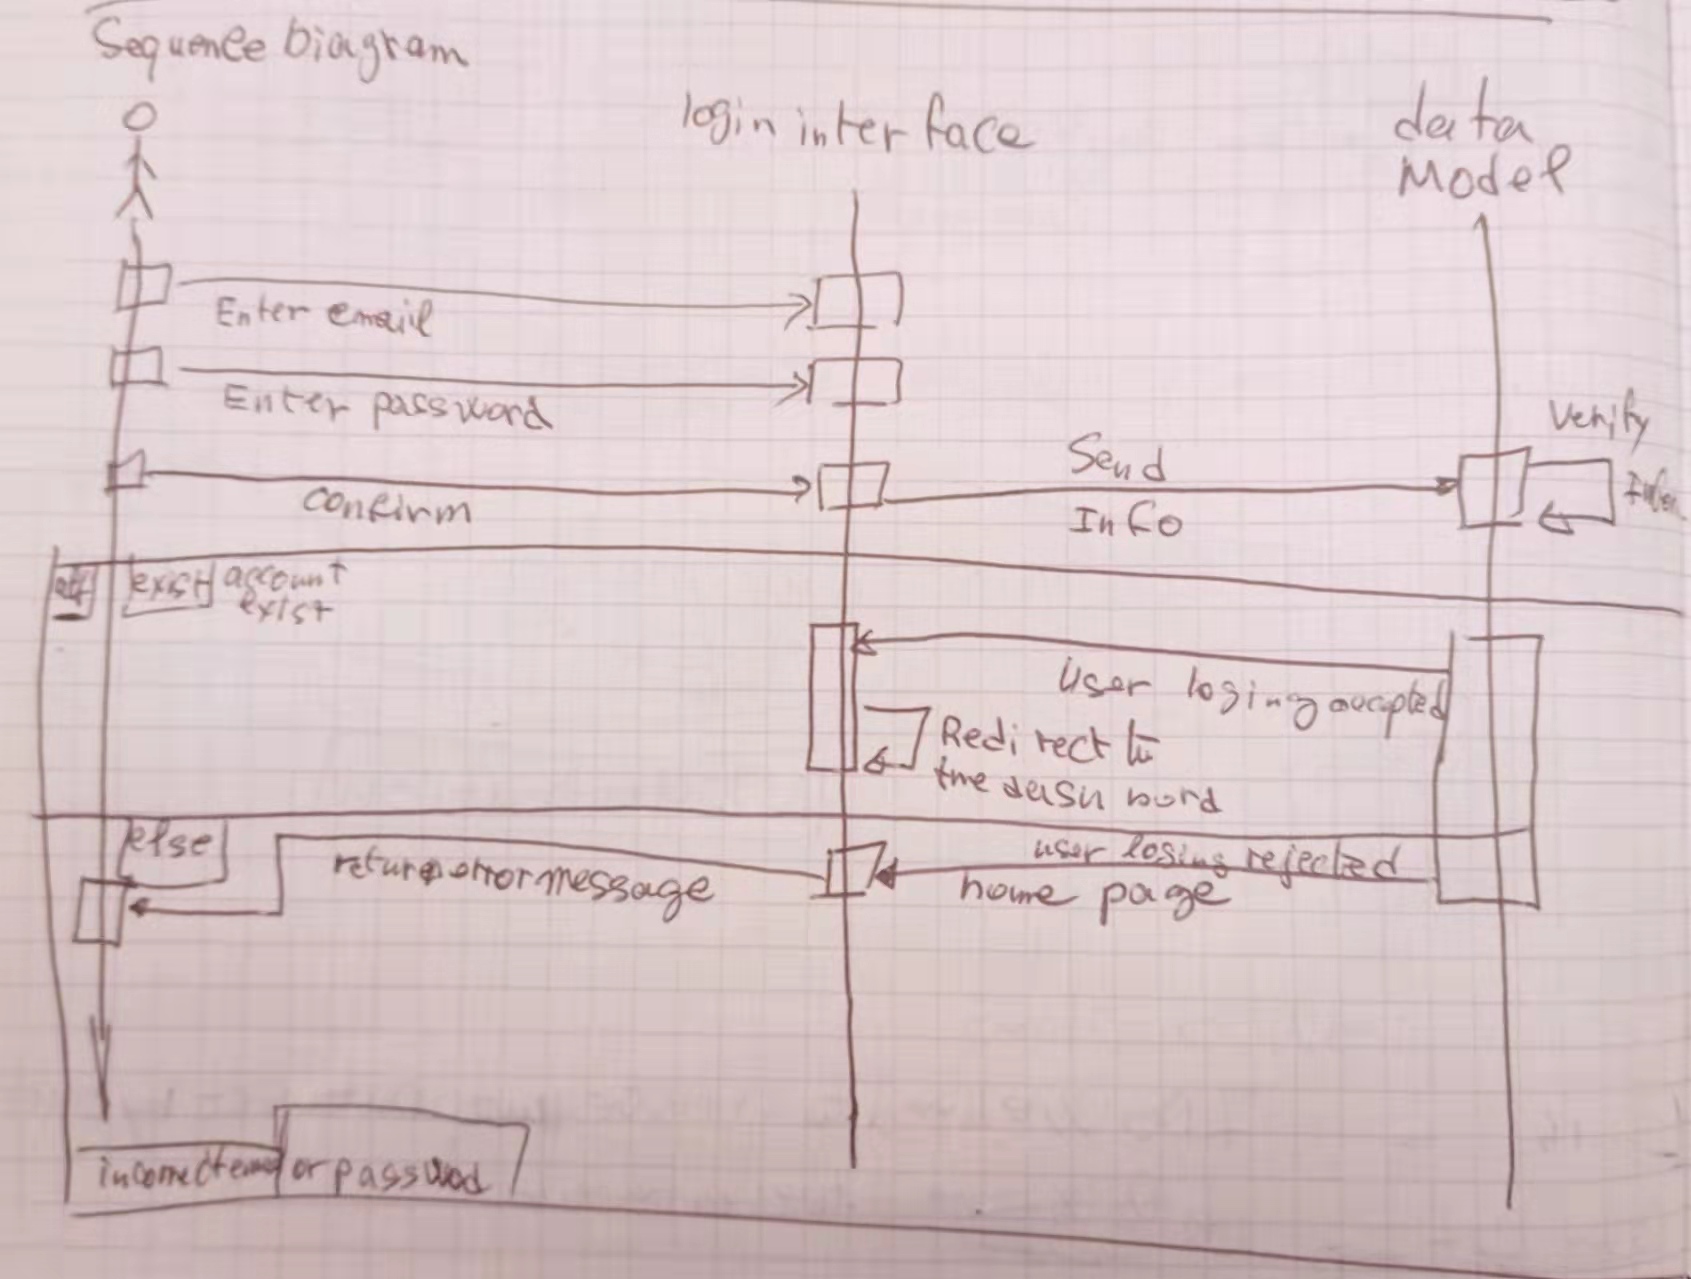 Sequence Diagram
login interface
data
Model
Enter email
Enter password
Verify
Send
Info
confirm
alt
exist
account
exist
User loging accepted
Redirect to
the dash bord
else
user losing rejected
return error message
home page
incorrect email or passwod